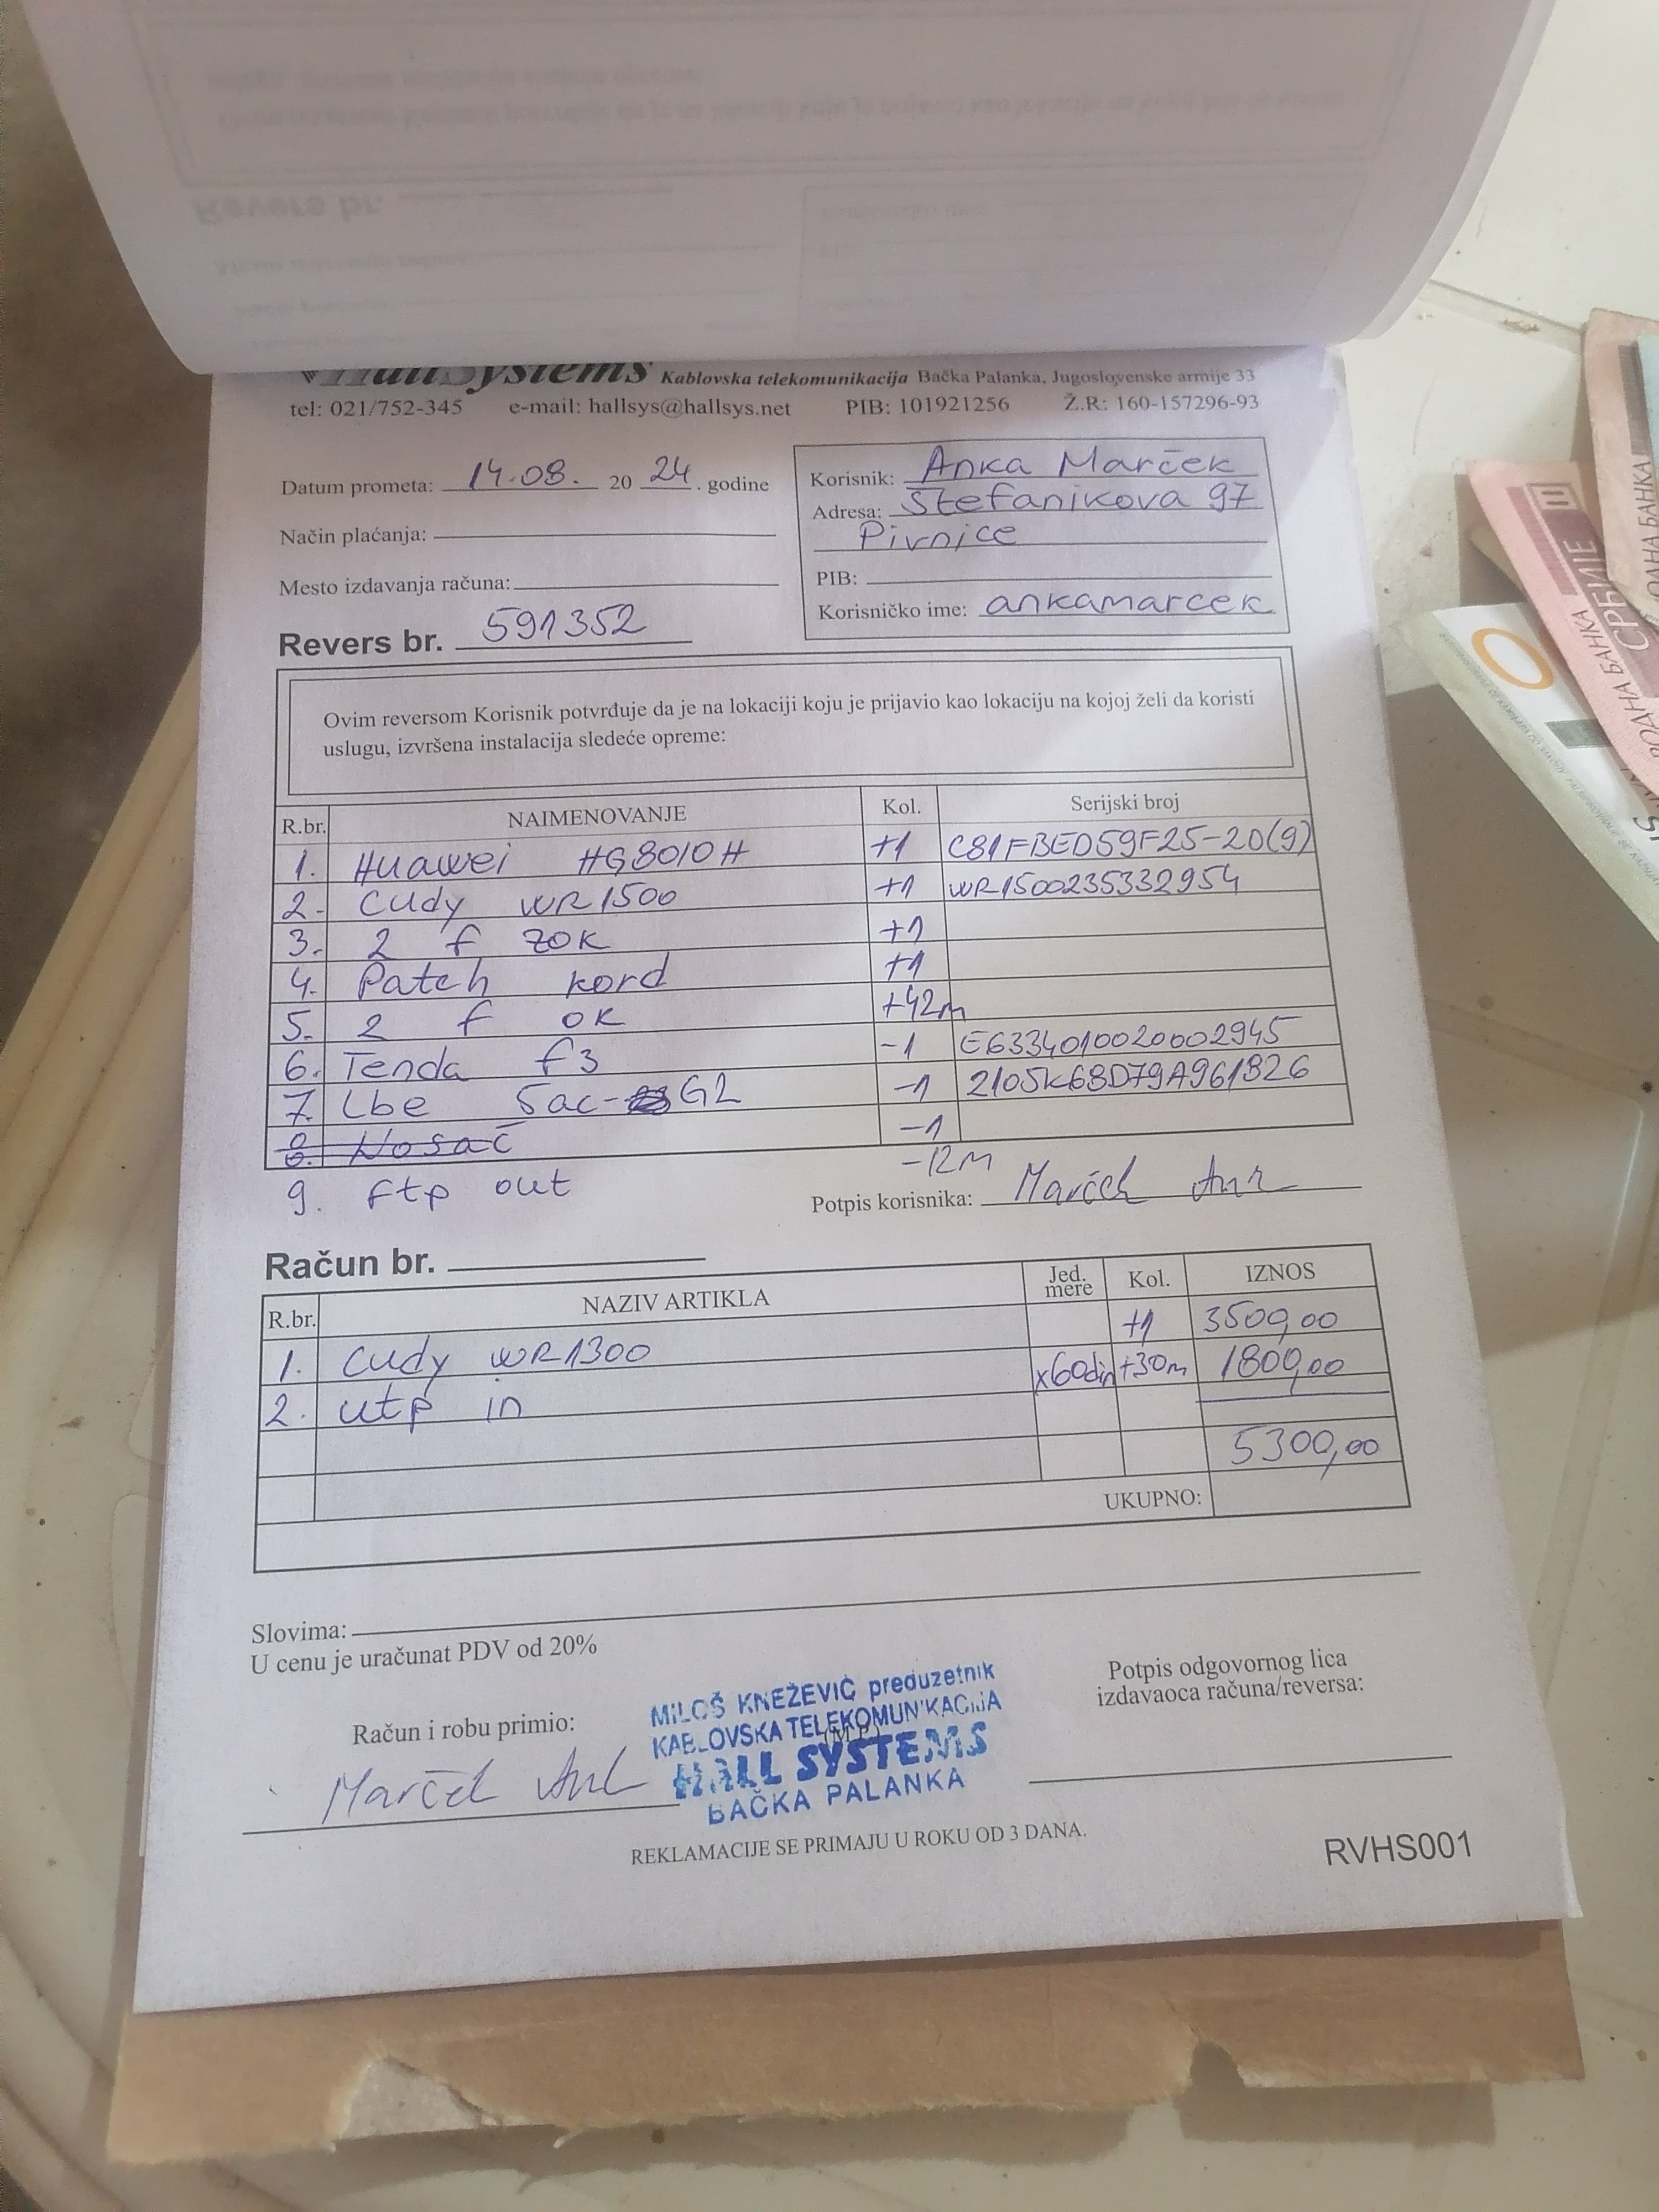 HallSystems Kablovska telekomunikacija Bačka Palanka, Jugoslovenske armije 33
tel: 021/752-345 e-mail: hallsys@hallsys.net PIB: 101921256 Ž.R: 160-157296-93
Datum prometa: 14.08. 20 24. godine
Način plaćanja:
Mesto izdavanja računa:
Revers br. 591352
Korisnik: Anka Marček
Adresa: Štefanikova 97
Pivnice
PIB:
Korisničko ime: ankamarcek
Ovim reversom Korisnik potvrđuje da je na lokaciji koju je prijavio kao lokaciju na kojoj želi da koristi
uslugu, izvršena instalacija sledeće opreme:
R.br. NAIMENOVANJE Kol. Serijski broj
1. Huawei HG8010H +1 C81FBED59F25-20(9)
2. Cudy WR1500 +1 WR1500235332954
3. 2 f ZOK +1
4. Patch kord +1
5. 2 f OK +42m
6. Tenda f3 -1 E6334010020002945
7. Lbe 5ac- G2 -1 2105K68D79A961826
8. Nosač -1
9. ftp out -12m
Potpis korisnika: Marček
Račun br.
R.br. NAZIV ARTIKLA Jed. mere Kol. IZNOS
1. Cudy WR1300 +1 3500,00
2. utp in x60din +30m 1800,00
5300,00
UKUPNO:
Slovima:
U cenu je uračunat PDV od 20%
Račun i robu primio:
Marček
MILOŠ KNEŽEVIĆ preduzetnik
KABLOVSKA TELEKOMUNIKACIJA
(M.P.)
HALL SYSTEMS
BAČKA PALANKA
Potpis odgovornog lica
izdavaoca računa/reversa:
REKLAMACIJE SE PRIMAJU U ROKU OD 3 DANA.
RVHS001